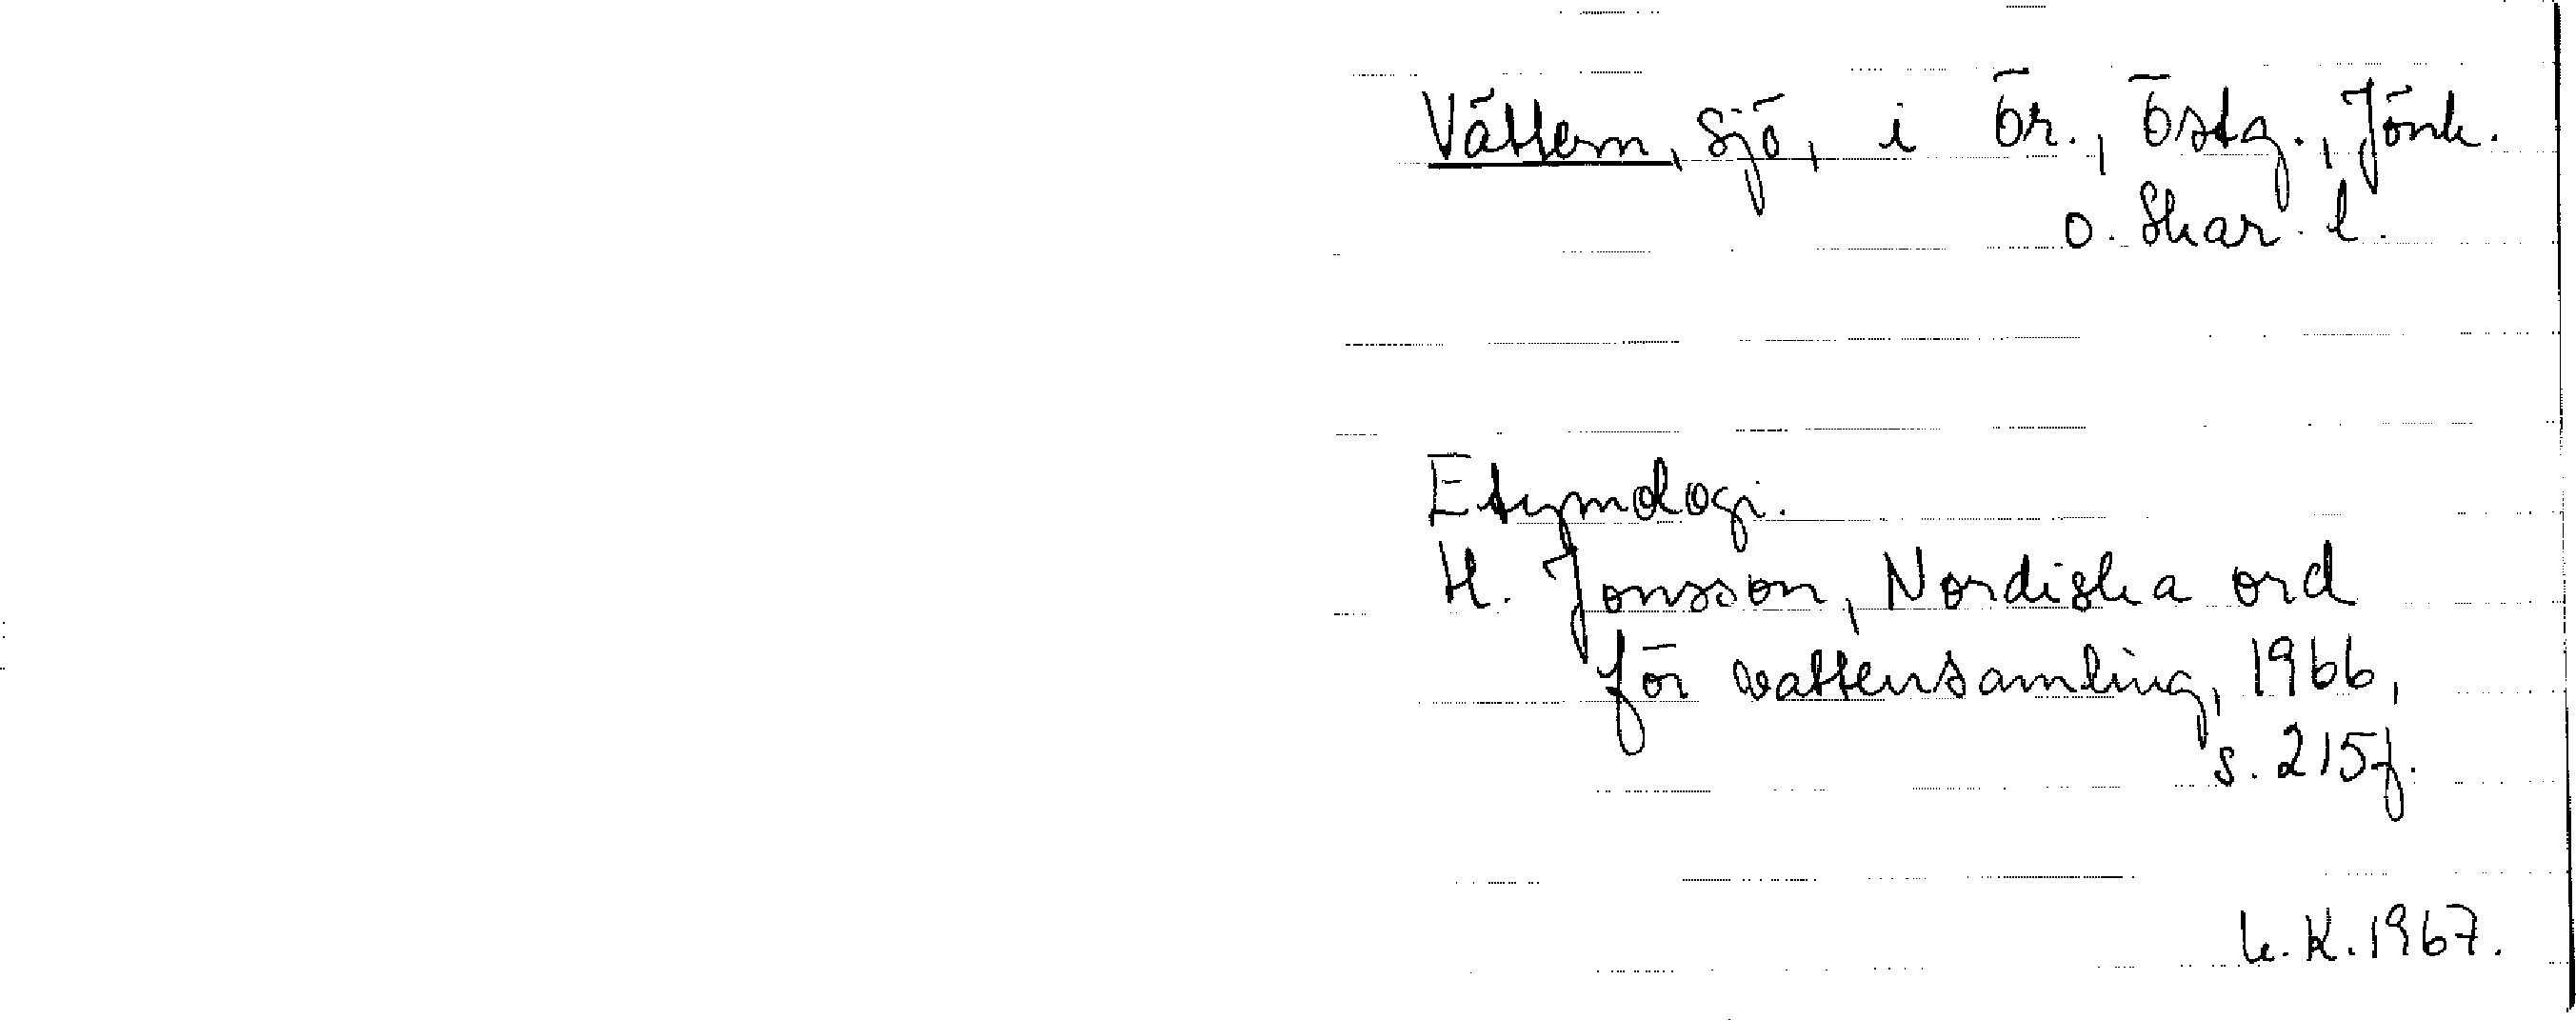 Vättern, sjö, i Ör., Östg., Jönk.
o. Skar. l.
Etymologi.
H. Jonsson, Nordiska ord
för vattensamling, 1966,
s. 215f.
K. 1967.